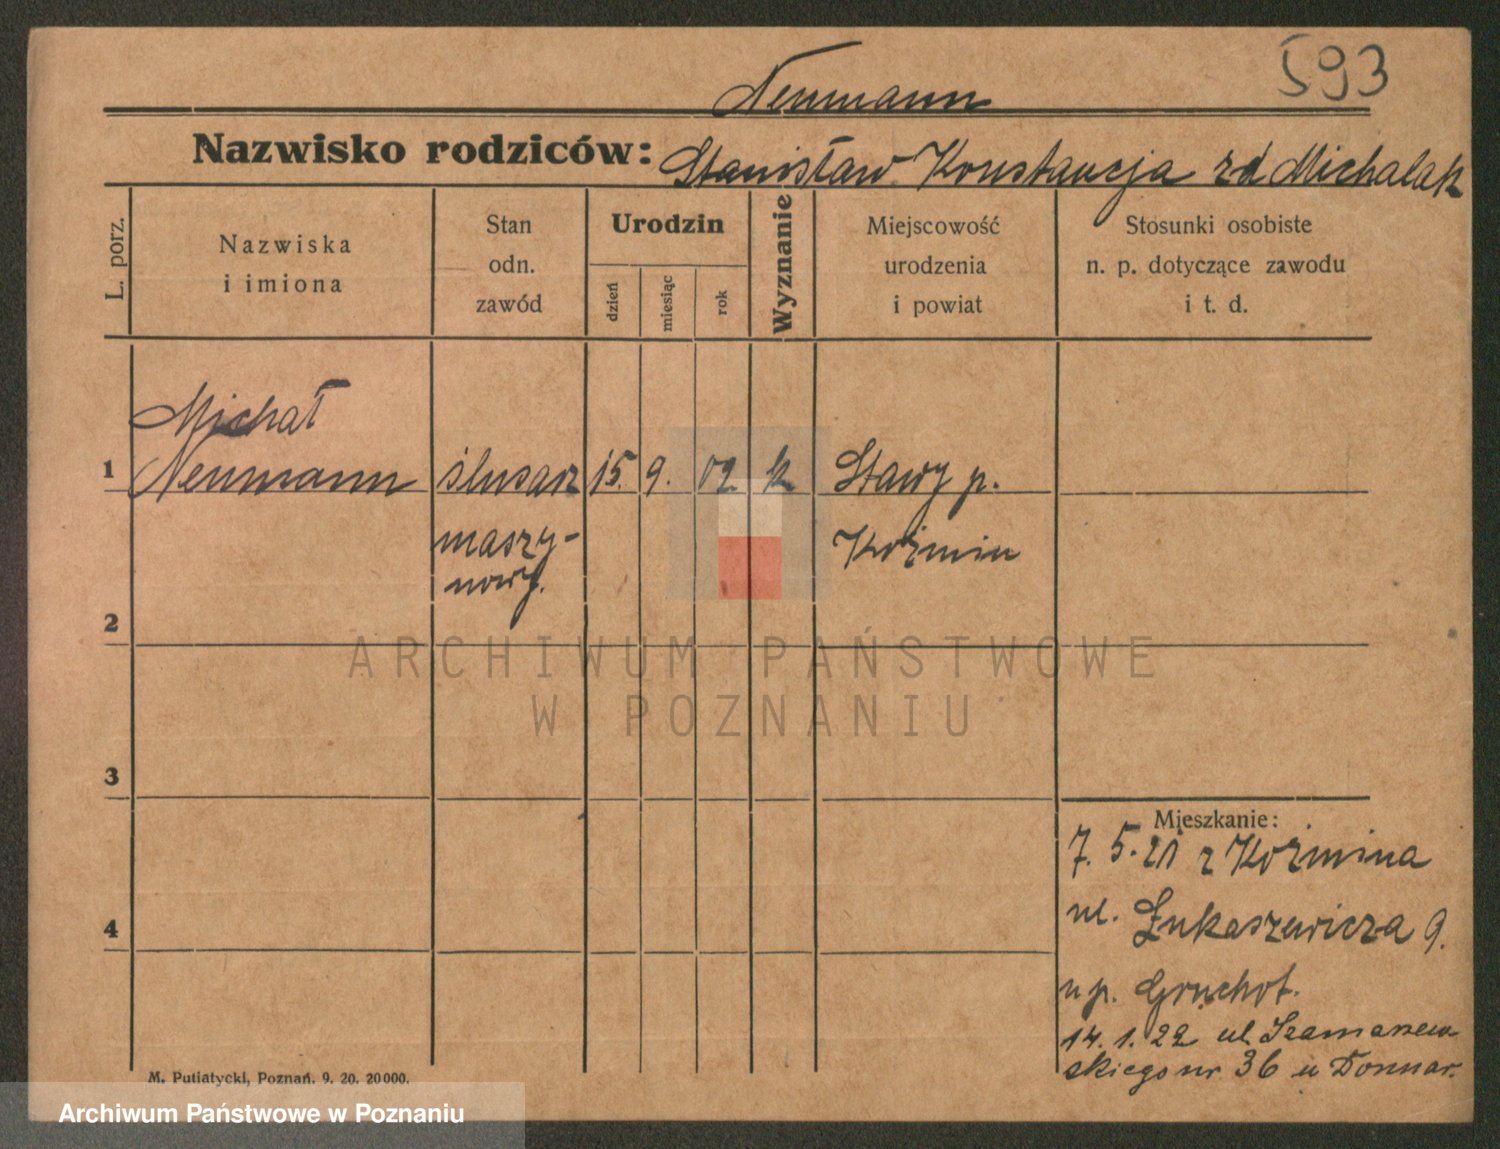 593
Neumann
Nazwisko rodziców: Stanisław Konstancja zd Michalak
L. porz.
Nazwiska
i imiona
Stan
odn.
zawód
Urodzin
dzień
miesiąc
rok
Wyznanie
Miejscowość
urodzenia
i powiat
Stosunki osobiste
n. p. dotyczące zawodu
i t. d.
Michał
1 Neumann ślusarz 15. 9. 02 k Stawy p.
maszy- Koźmin
nowy.
2
3
4
Mieszkanie:
7. 5. 21 z Koźmina
ul. Łukaszewicza 9.
u p. Gruchot.
14. 1. 22 ul Szamarzew-
skiego nr 36 u
M. Putiatycki, Poznań. 9. 20. 20000.
ARCHIWUM PAŃSTWOWE
W POZNANIU
Archiwum Państwowe w Poznaniu